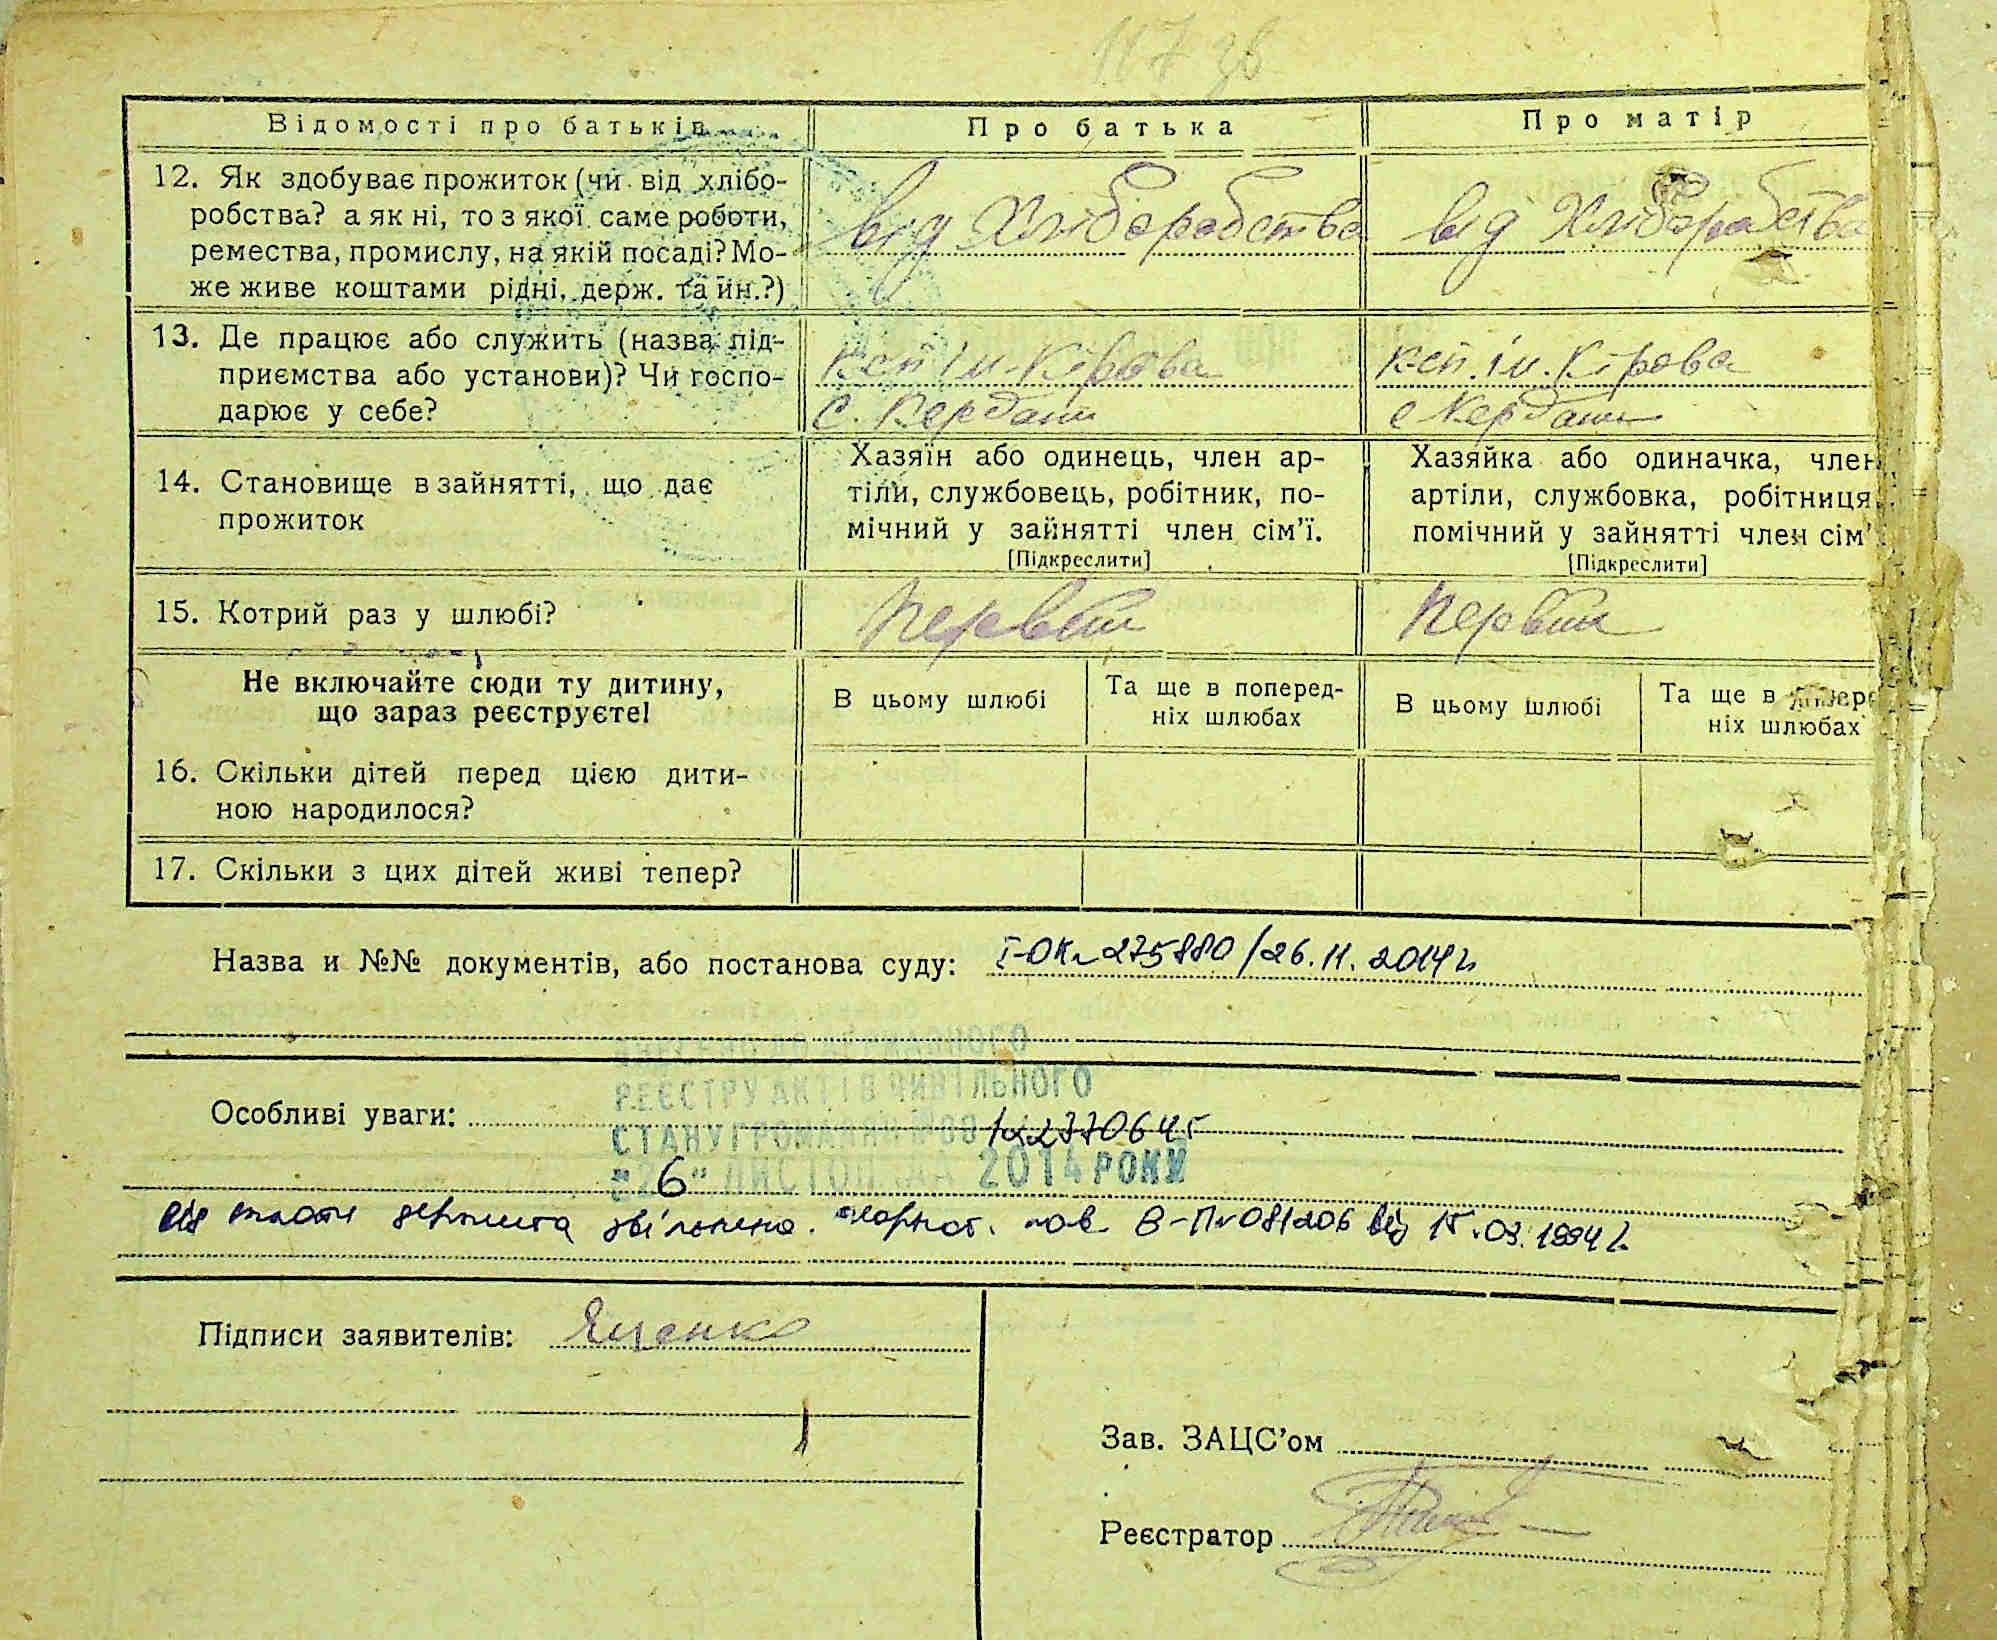 117 зв
Відомості про батьків
Про батька
Про матір
12. Як здобуває прожиток (чи від хлібо-
робства? а як ні, то з якої саме роботи,
ремества, промислу, на якій посаді? Мо-
же живе коштами рідні, держ. та ин.?)
від Хліборобства
від Хліборобства
13. Де працює або служить (назва під-
приємства або установи)? Чи госпо-
дарює у себе?
Ксп ім. Кірова
с. Кердани
Ксп. ім. Кірова
с Кердани
14. Становище в зайнятті, що дає
прожиток
Хазяїн або одинець, член ар-
тіли, службовець, робітник, по-
мічний у зайнятті член сім’ї.
[Підкреслити]
Хазяйка або одиначка, член
артіли, службовка, робітниця,
помічний у зайнятті член сім’
[Підкреслити]
15. Котрий раз у шлюбі?
Первий
Первий
Не включайте сюди ту дитину,
що зараз реєструєте!
В цьому шлюбі
Та ще в поперед-
ніх шлюбах
В цьому шлюбі
Та ще в попере
ніх шлюбах
16. Скільки дітей перед цією дити-
ною народилося?
17. Скільки з цих дітей живі тепер?
Назва и №№ документів, або постанова суду: І-ОК № 275880 / 26.11.2014 г
ВНЕСЕНО ДО ДЕРЖАВНОГО
РЕЄСТРУ АКТІВ ЦИВІЛЬНОГО
Особливі уваги:
СТАНУ ГРОМАДЯН №00 122770645
"26" ЛИСТОПАДА 2014 РОКУ
від сплати держмита звільнена. пов. В-П № 081206 від 15.03.1994 г.
Підписи заявителів: Яценко
Зав. ЗАЦС’ом
Реєстратор